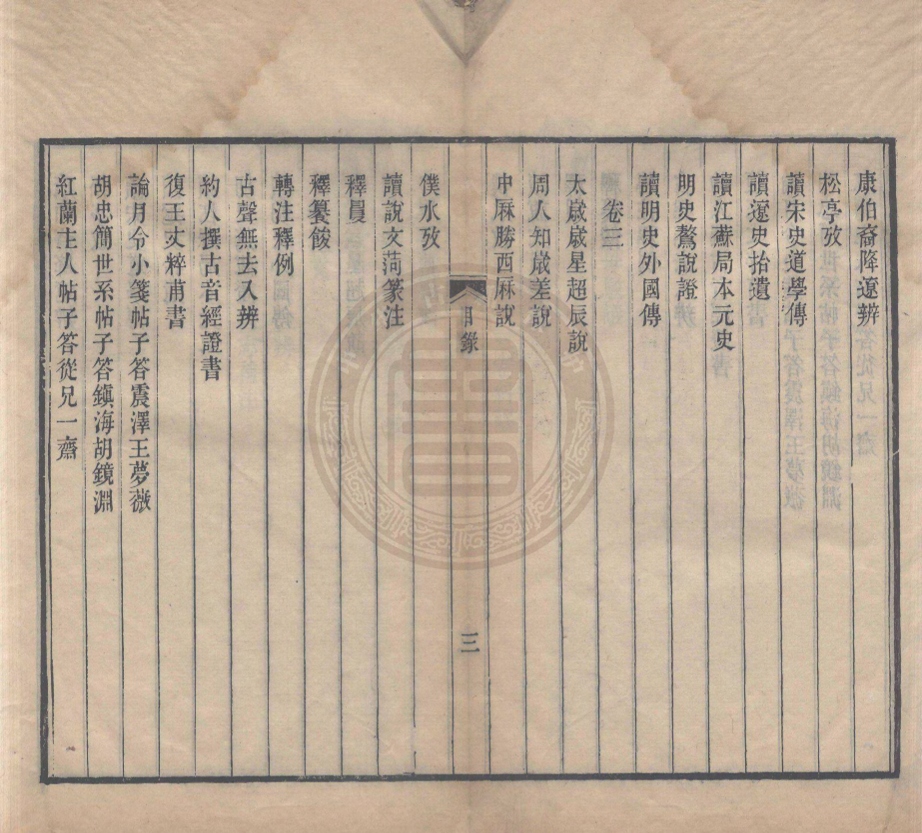 康伯裔降遼辨
松亭攷
讀宋史道學傳
讀遼史拾遺
讀江蘇局本元史
明史驁說證
讀明史外國傳
卷三
太歲歲星超辰說
周人知歲差說
申厤勝西厤說
目錄
三
僕水攷
讀說文菏篆注
釋䬸餕
轉注釋例
古聲無去入辨
約人撰古音經證書
復王丈粹甫書
論月令小箋帖子答震澤王夢薇
胡忠簡世系帖子答鎮海胡鏡淵
紅蘭主人帖子答從兄一齋